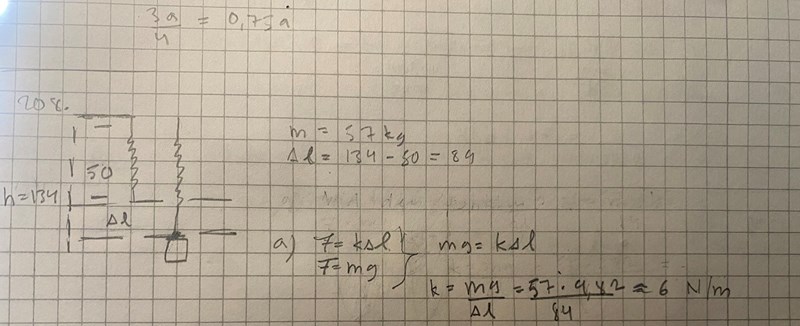 3a/4 = 0,75a
208.
50
h=134
Δl
m = 57 kg
Δl = 134 - 50 = 84
a) F = kΔl
F = mg
mg = kΔl
k = mg/Δl = 57·9,82/84 ≈ 6 N/m